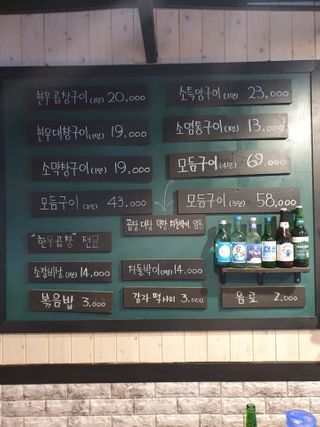 한우곱창구이(1인) 20,000
소특양구이(1인) 23,000
한우대창구이(1인) 19,000
소염통구이(1인) 13,000
소막창구이(1인) 19,000
모듬구이(4인) 69,000
모듬구이(2인) 43,000
모듬구이(3인) 58,000
곱창 대창 막창 차돌박이 염통
"한우곱창" 전문
소갈비살(1인) 14,000
차돌박이(1인) 14,000
볶음밥 3,000
감자 떡사리 3,000
음료 2,000